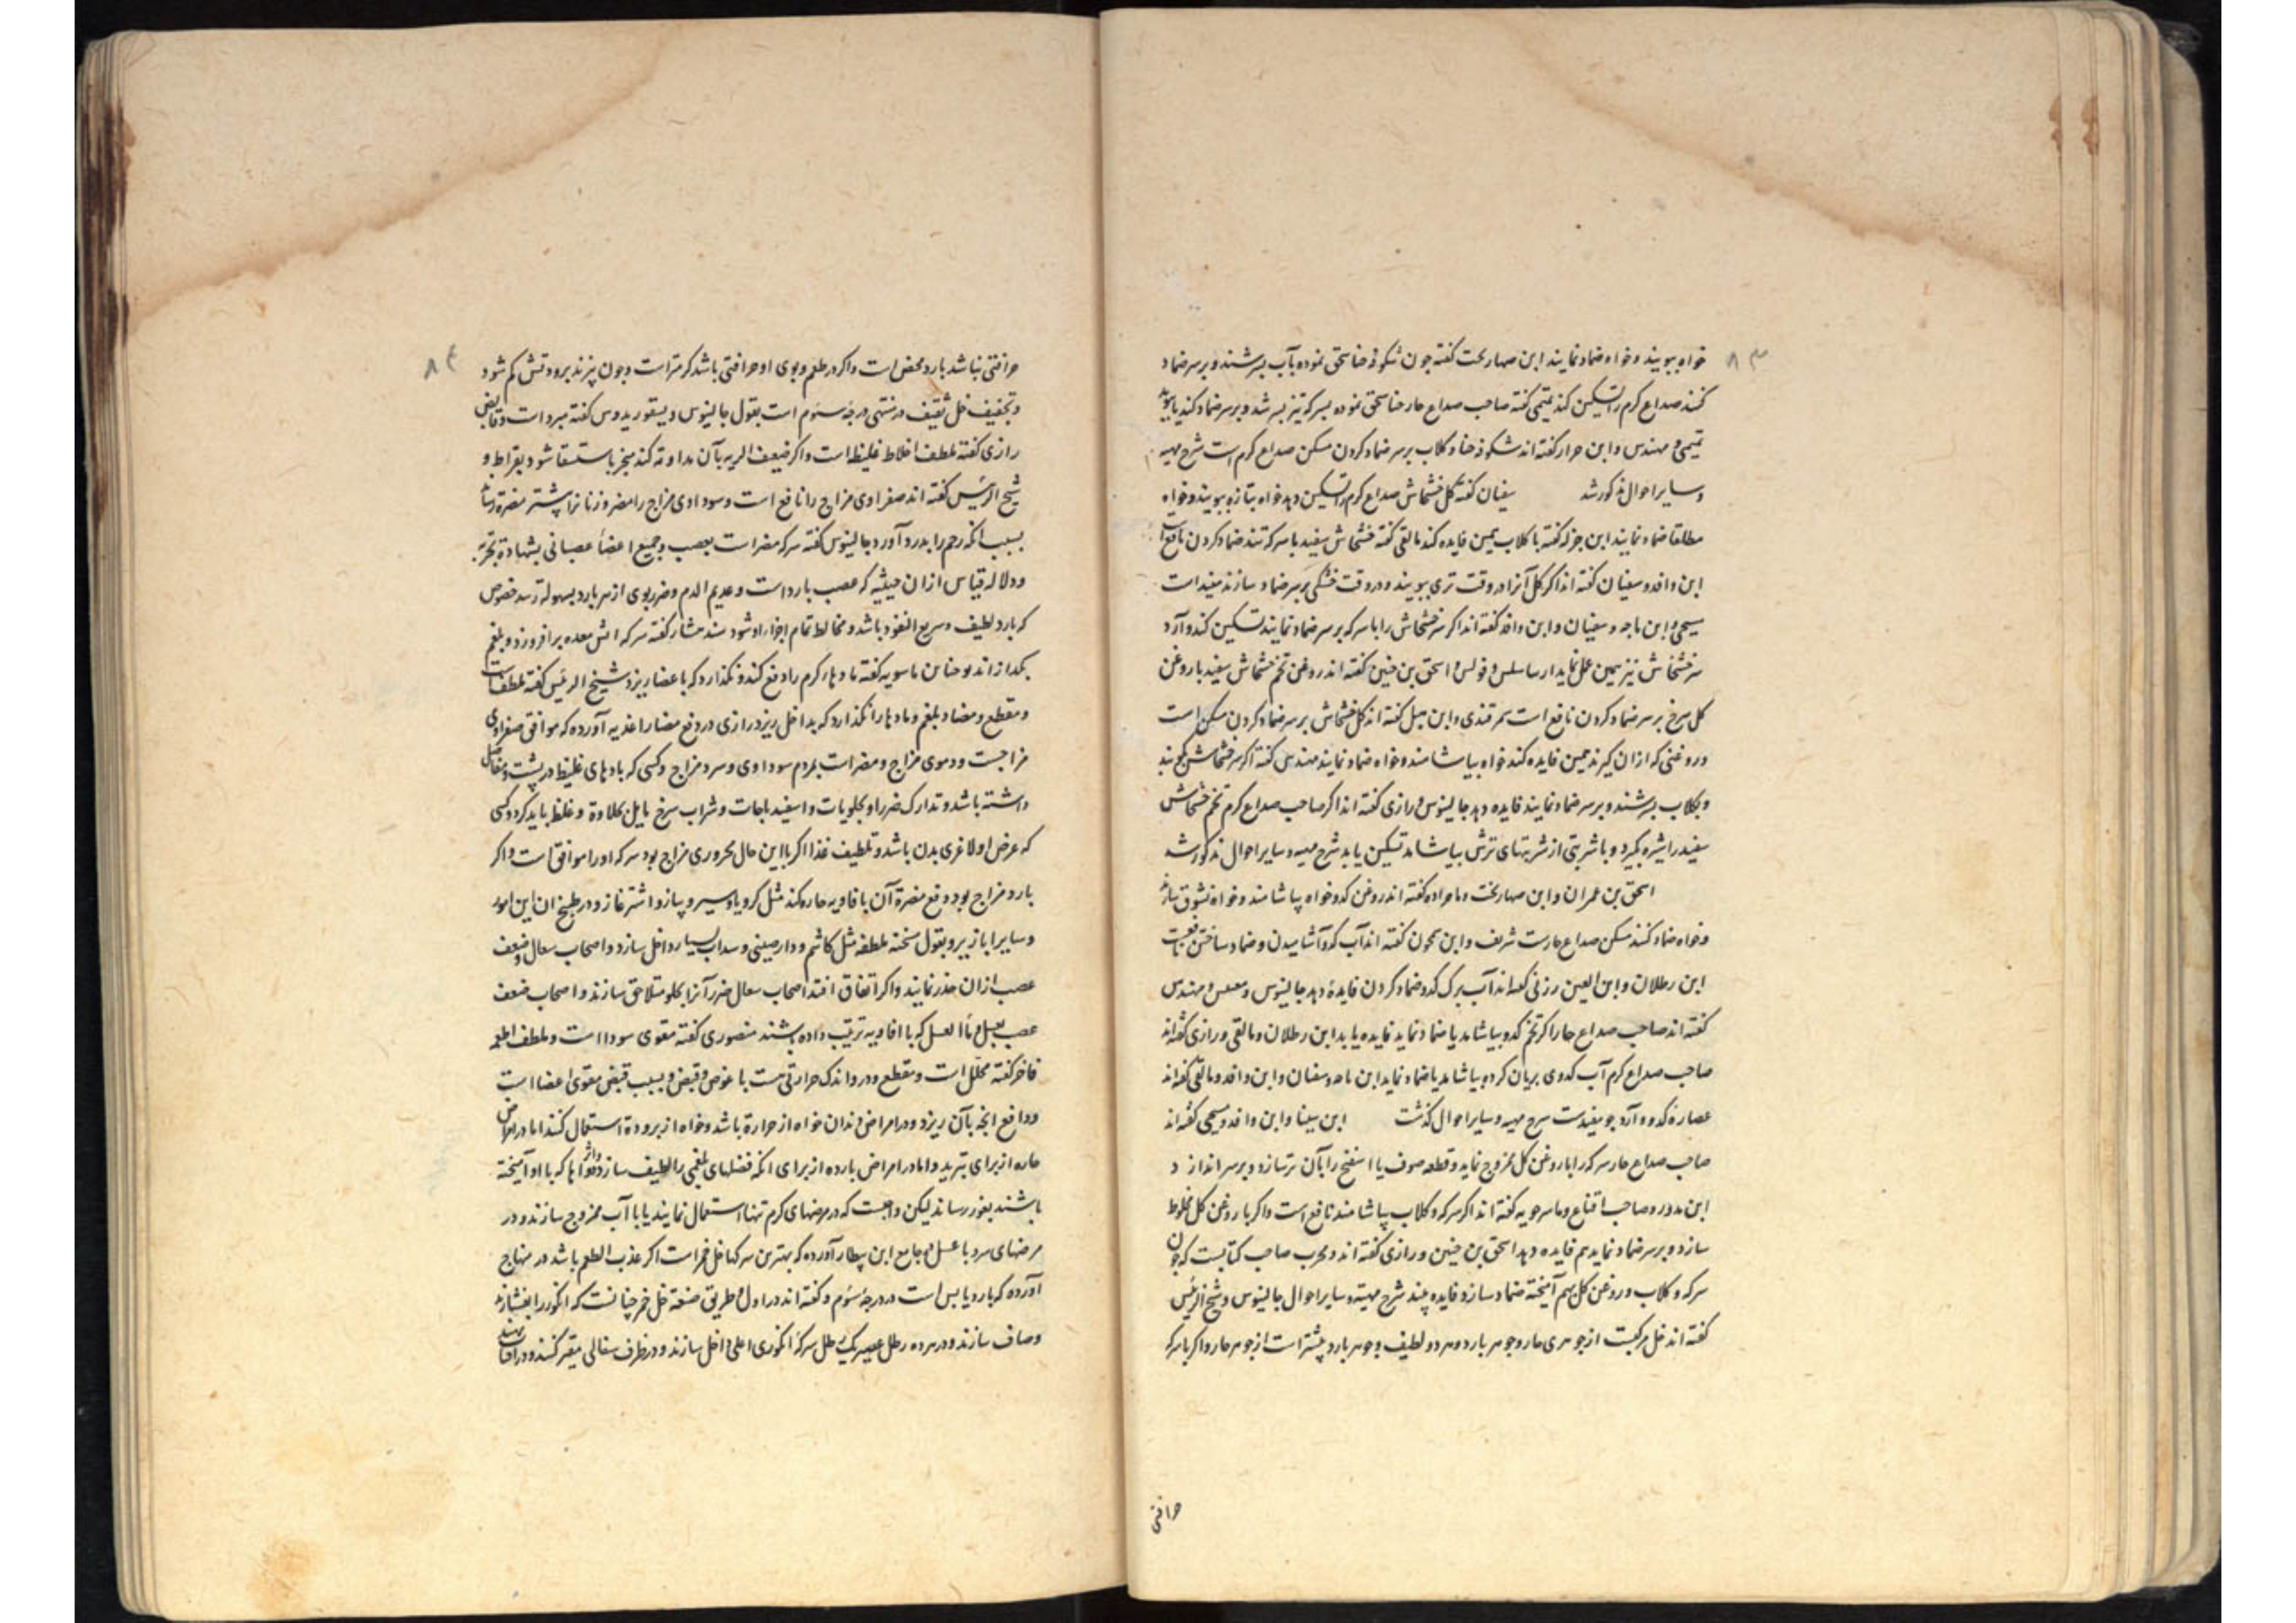 ۸۳
خواه ببویند و خواه ضماد نمایند ابن صهاربخت گفته چون شکوفه حنا سحق نموده بآب بسرشند و بر سر ضماد
کنند صداع کرم را تسکین کند تمیمی گفته صاحب صداع حار حنا سحق نموده بسرکه نیز بسرشد و بر سر ضماد کند یا
تمیمی و مهندس و ابن حرار گفته اند شکوفه حنا و کلاب بر سر ضماد کردن مسکن صداع کرم است شرح مهیه
و سایر احوال مذکور شد سفیان گفته کل خشخاش صداع کرم را تسکین دهد خواه بتازه ببویند و خواه
مطلقا ضماد نمایند ابن جزله گفته با کلاب همین فایده کند مالقی گفته خشخاش سفید با سرکه تند ضماد کردن نافع
ابن وافد و سفیان گفته اند اکر کل آنرا در وقت تری ببویند و در وقت خشکی بر سر ضماد سازند مفید است
مسیحی و ابن ماجه و سفیان و ابن وافد گفته اند اکر سر خشخاش را با سرکه بر سر ضماد نمایند تسکین کند و آرد
سر خشخاش نیز همین عمل نماید ارساسلس و فولس و اسحق بن حنین گفته اند روغن تخم خشخاش سفید با روغن
کل سرخ بر سر ضماد کردن نافع است سمرقندی و ابن هبل گفته اند کل خشخاش بر سر ضماد کردن مسکن است
و روغنی که از ان کیرند همین فایده کند خواه بیاشامند و خواه ضماد نمایند مهندس گفته اکر سر خشخاش
و بکلاب بسرشند و بر سر ضماد نمایند فایده دهد جالینوس و رازی گفته اند اکر صاحب صداع کرم تخم خشخاش
سفید را شیره بکیرد و با شربتی از شربتهای ترش بیاشامد تسکین یابد شرح مهیه و سایر احوال مذکور شد
اسحق بن عمران و ابن صهاربخت و گفته اند روغن کدو خواه بیاشامند و خواه نشوق
و خواه ضماد کنند مسکن صداع حارست شریف و ابن گفته اند آب کدو آشامیدن و ضماد ساختن
ابن رطلان و ابن العین زربی گفته اند آب برک کدو ضماد کردن فایده دهد جالینوس و و مهندس
گفته اند صاحب صداع حار اکر تخم کدو بیاشامد یا ضماد نماید فایده یابد ابن رطلان و مالقی و رازی گفته اند
صاحب صداع کرم آب کدوی بریان کرده بیاشامد یا ضماد نماید ابن ماجه و سفیان و ابن وافد و مالقی گفته اند
عصاره کدو و آرد جو مفیدست شرح مهیه و سایر احوال گذشت ابن سینا و ابن وافد و مسیحی گفته اند
صاحب صداع حار سرکه را با روغن کل ممزوج نماید و قطعه صوف یا اسفنج را بآن تر سازد و بر سر اندازد
ابن مدور و صاحب اقناع و ماسرجویه گفته اند اکر سرکه و کلاب بیاشامند نافع است و اکر با روغن کل مخلوط
سازد و بر سر ضماد نماید هم فایده دهد اسحق بن حنین و رازی گفته اند و مجرب صاحب کتابست که چون
سرکه و کلاب و روغن کل بهم آمیخته ضماد سازد فایده بیند شرح مهیته و سایر احوال جالینوس و شیخ الرئیس
گفته اند خل مرکبست از جوهری حار و جوهر بارد و هر دو لطیف و جوهر بارد بیشتر است از جوهر حار و اکر با سرکه
حرافتی
۸۴
حرافتی نباشد بارد محض است و اکر در طعم و بوی او حرافتی باشد کرمتر است و چون بپزند برودتش کم شود
و تجفیف خل ثقیف در منتهی درجه سئوم است بقول جالینوس دیسقوریدوس گفته مبرد است و قابض
رازی گفته ملطف اخلاط غلیظ است و اکر ضعیف الریه بآن مداومه کند منجر باستسقا شود بقراط و
شیخ الرئیس گفته اند صفراوی مزاج را نافع است و سوداوی مزاج را مضر و زنانرا بیشتر مضرة رساند
بسبب انکه رحم را بدرد آورد جالینوس گفته سرکه مضر است بعصب و جمیع اعضاء عصبانی بشهادة تجربه
و دلاله قیاس از ان حیثیه که عصب بارد است و عدیم الدم و ضرر بوی از هر بارد بسهوله رسد خصوص
که بارد لطیف و سریع النفوذ باشد و مخالط تمام اجزاء او شود سندهشار گفته سرکه آتش معده برافروزد و بلغم
بکدازاند یوحنا بن ماسویه گفته مادهاء کرم را دفع کند و نکذارد که باعضا ریزد شیخ الرئیس گفته ملطفست
و مقطع و مضاد بلغم و مادها را نکذارد که بداخل ریزد رازی در دفع مضار اغذیه آورده که موافق صفراوی
مزاجست و دموی مزاج و مضر است بمردم سوداوی و سرد مزاج و کسی که بادهای غلیظ در پشت و مفاصل
داشته باشد و تدارک ضرر او بحلویات و اسفیدباجات و شراب سرخ مایل بحلاوة و غلظ باید کرد و کسی
که غرض او لاغری بدن باشد و تلطیف غذا اکر با این حال محروری مزاج بود سرکه او را موافق است و اکر
بارد مزاج بود دفع مضرة آن با فاویه حاره کند مثل کرویا و سیر و پیاز و اشترغاز و در طبیخ ان این امور
و سایر ابازیر و بقول مسخنه ملطفه مثل کاشم و دارچینی و سداب بسیار داخل سازد و اصحاب سعال و ضعف
عصب از ان حذر نمایند و اکر اتفاق افتد اصحاب سعال ضرر آنرا بحلو متلاحق سازند و اصحاب ضعف
عصب بعسل و ماء العسل که با افاویه ترتیب داده باشند منصوری گفته مقوی سودا است و ملطف اطعمه
فاخر گفته محلل است و مقطع و درو اندک حرارتی هست با غوص و قبض و بسبب قبض مقوی اعضا است
و دافع انچه بآن ریزد و در امراض دندان خواه از حرارة باشد و خواه از برودة استعمال کنند اما در امراض
حاره از برای تبرید و اما در امراض بارده از برای انکه فضلهای بلغمی را لطیف سازد و اثر دواها که با او آمیخته
باشند بغور رساند لیکن واجبست که در مرضهای کرم تنها استعمال نمایند یا با آب ممزوج سازند و در
مرضهای سرد با عسل و جامع ابن بیطار آورده که بهترین سرکها خل خمر است اکر عذب الطعم باشد در منهاج
آورده که بارد یابس است در درجه سئوم و گفته اند در اول و طریق صنعة خل خمر چنانست که انکور را بفشارند
و صاف سازند و در هر ده رطل عصیر یک رطل سرکه انکوری اعلی داخل سازند و در ظرف سفالی مقیر کنند و در آفتاب نهند